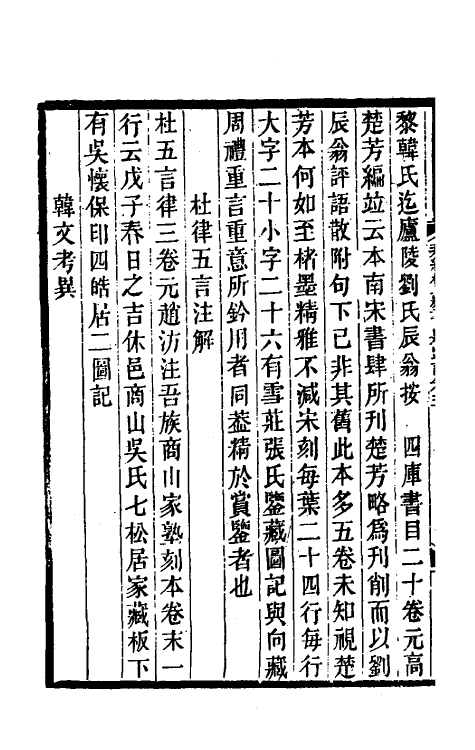 黎韓氏迄廬陵劉氏辰翁按　四庫書目二十卷元高
楚芳編竝云本南宋書肆所刊楚芳略爲刊削而以劉
辰翁評語散附句下已非其舊此本多五卷未知視楚
芳本何如至楮墨精雅不減宋刻每葉二十四行每行
大字二十小字二十六有雪莊張氏鑒藏圖記與向藏
周禮重言重意所鈐用者同葢精於賞鑒者也
杜律五言注解
杜五言律三卷元趙汸注吾族商山家塾刻本卷末一
行云戊子春日之吉休邑商山吳氏七松居家藏板下
有吳懷保印四皓居二圖記
韓文考異